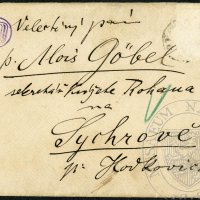 Velectěný pán
p. Alois Göbel
sekretář knížete Rohana
na
Sychrově
p. Hodkovice